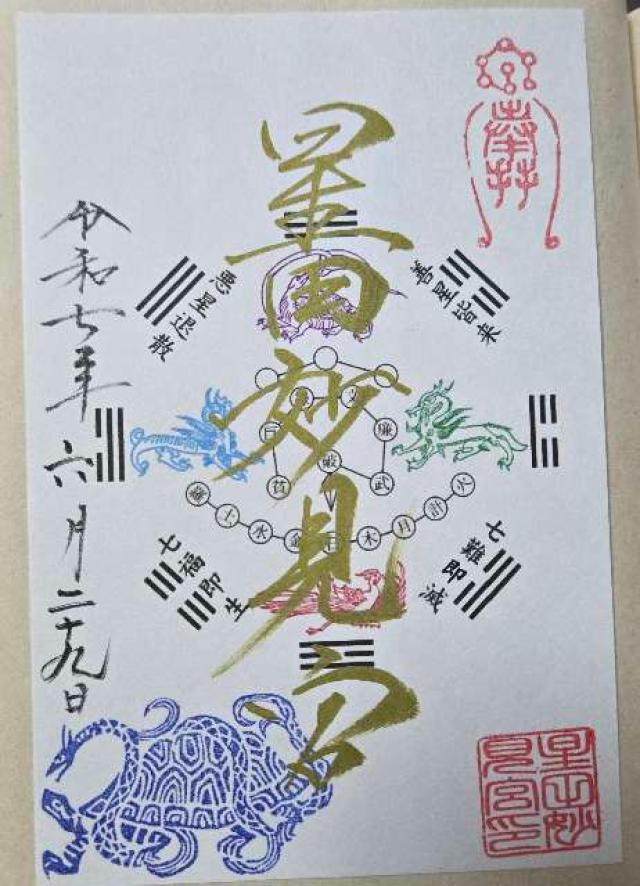 奉拝
星田妙見宮
善星皆来
悪星退散
七難即滅
七福即生
文
廉
巨
破
貪
武
羅土水金日木月計火
令和七年六月二十九日
星田妙見宮印